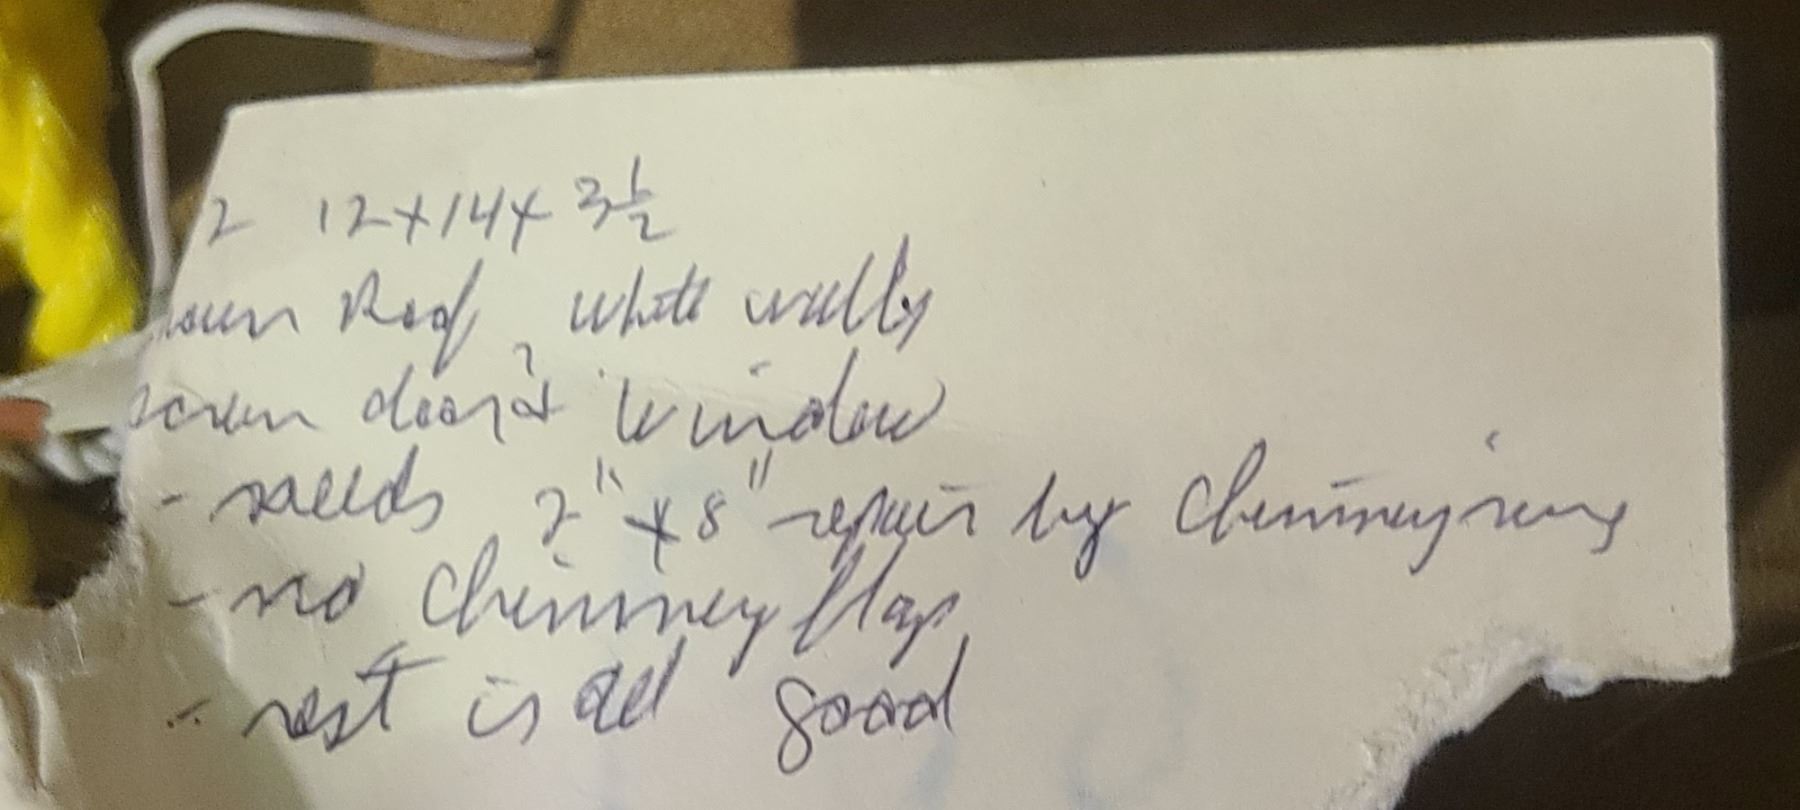 2 12x14x 3½
Roof, white walls
screen door & window
- needs 2" x 8" repair by chimney ring
- no chimney flap
- rest is all good